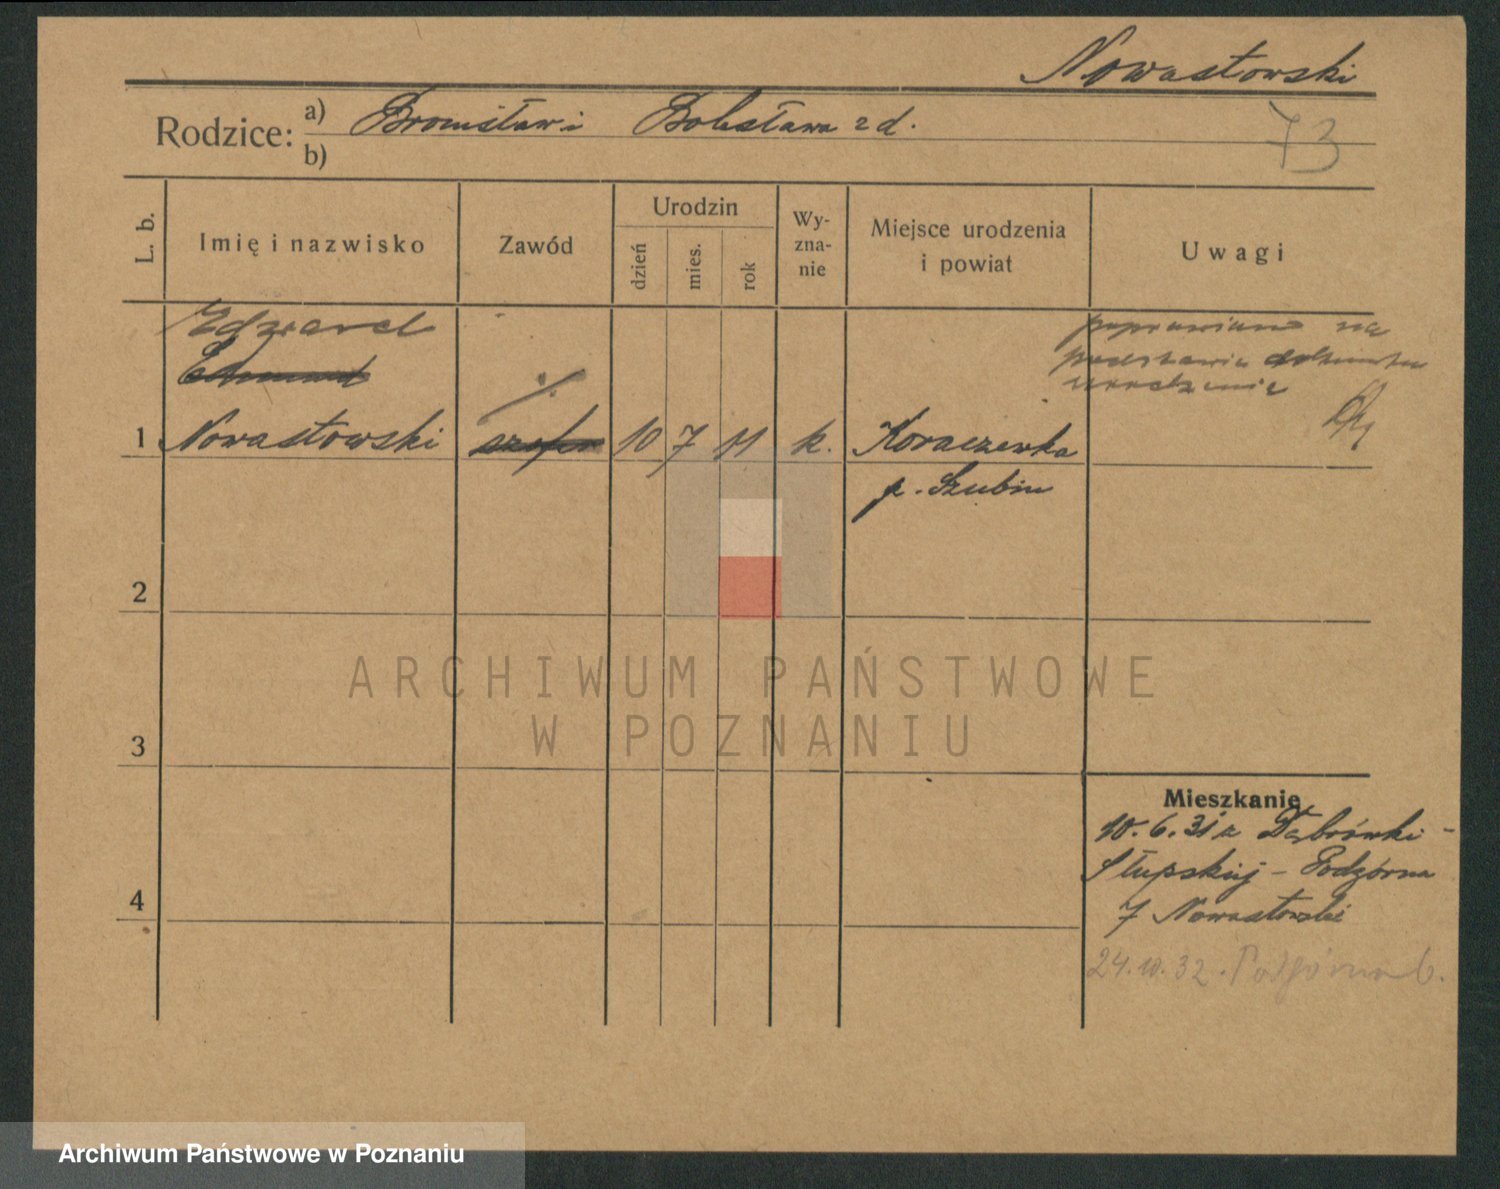 Nowastowski
Rodzice: a) Bronisław i Bolesława z d.
b)
73
L. b.
Imię i nazwisko
Zawód
Urodzin
dzień
mies.
rok
Wy-
zna-
nie
Miejsce urodzenia
i powiat
Uwagi
Edward
Edmund
poprawiono na
podstawie dokumentu
urodzenia
1 Nowastowski szofer 10 7 11 k.
p. Szubin
2
3
4
Mieszkanie
10.6.31 z Dąbrówki -
Słupskiej - Podgórna
7 Nowastowski
24.10.32. Podgórna 6.
ARCHIWUM PAŃSTWOWE
W POZNANIU
Archiwum Państwowe w Poznaniu